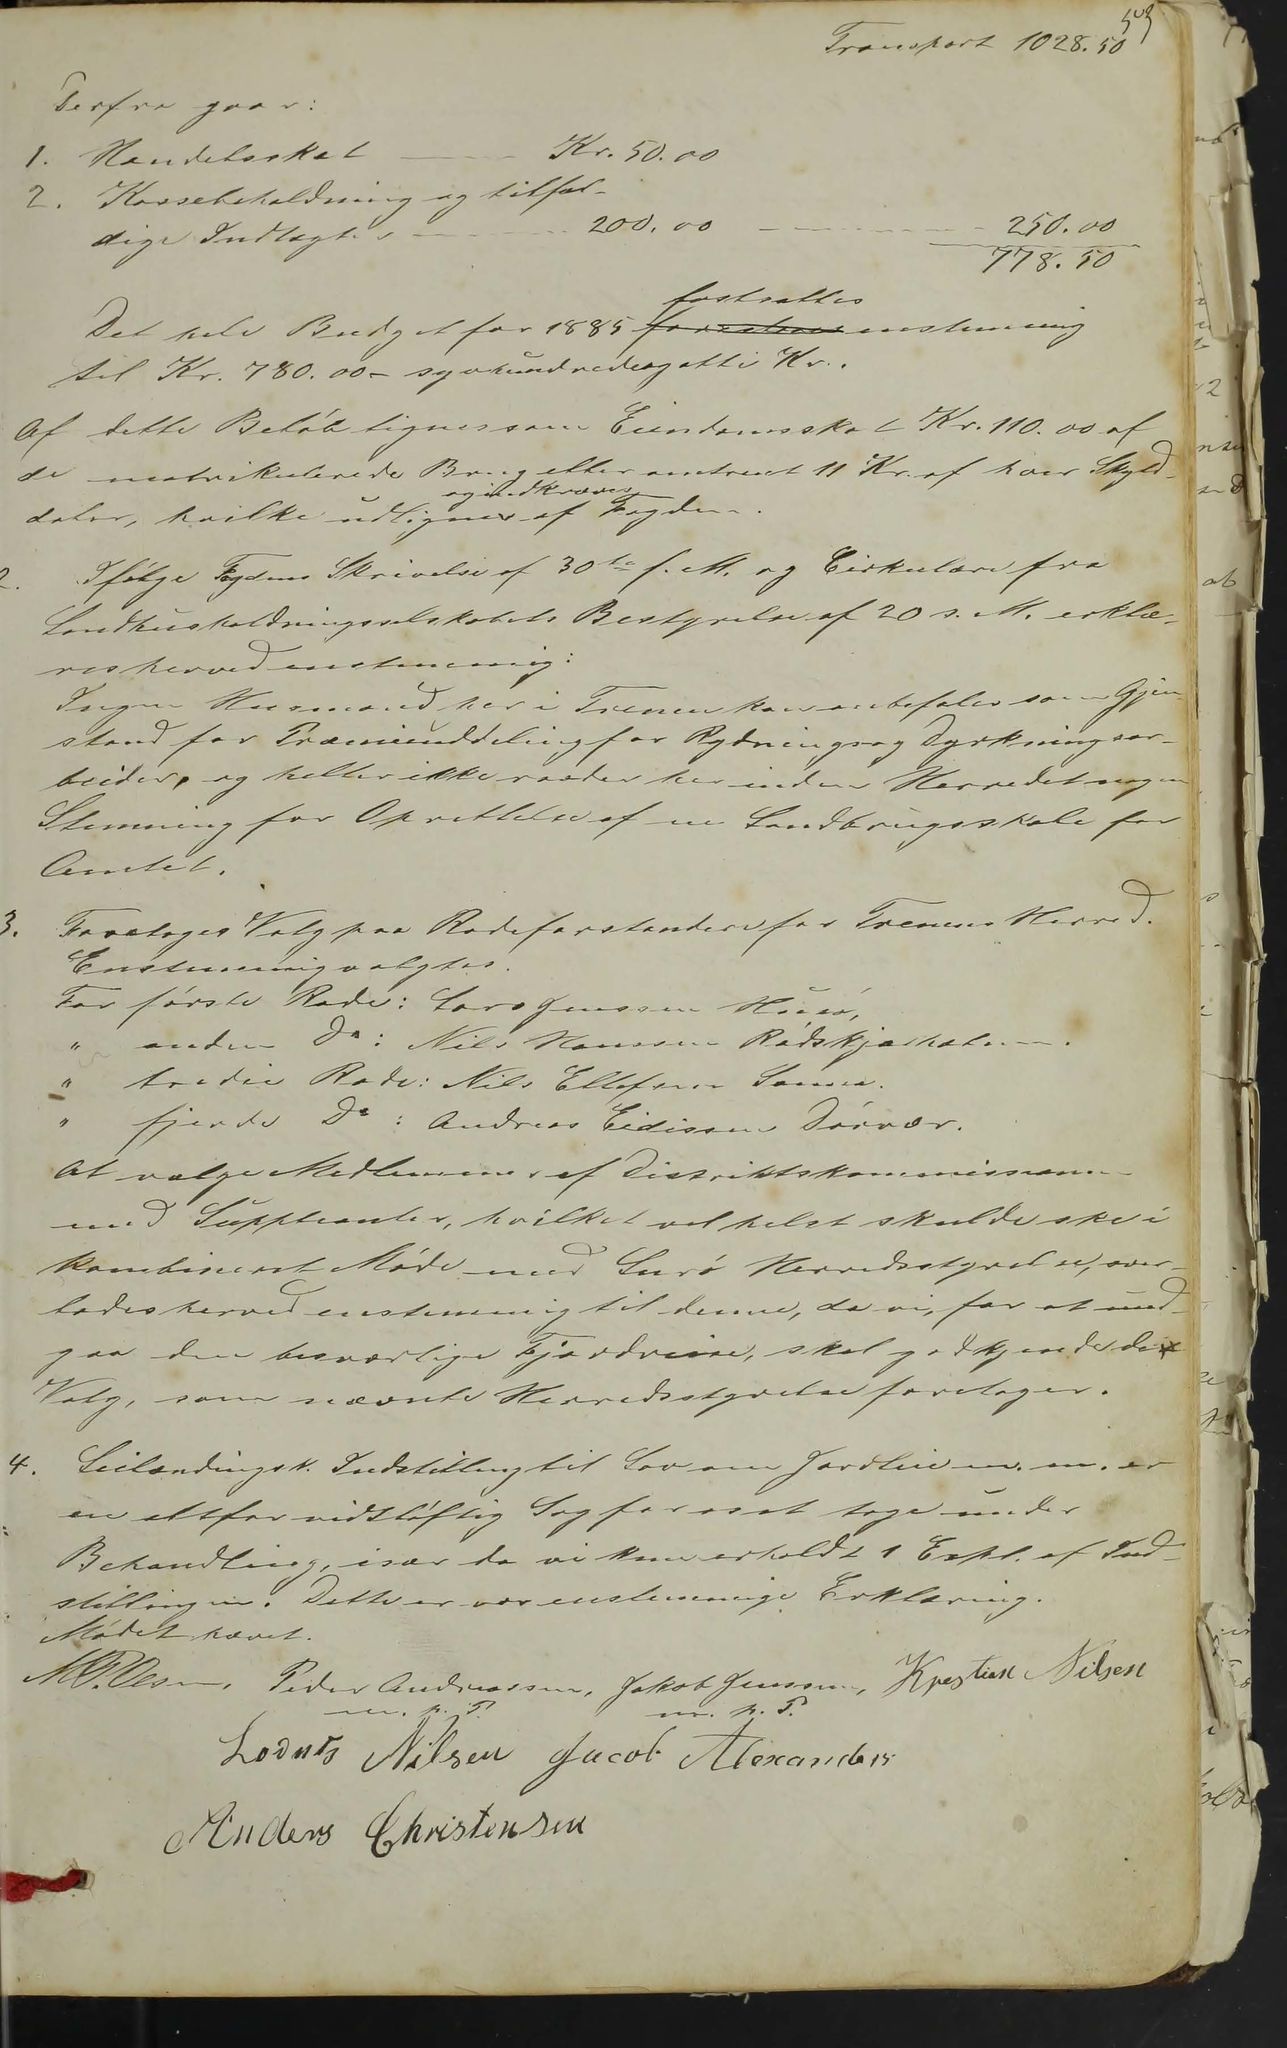 53
Transport 1028.50
Derfra gaar:
1. Handelsskat Kr. 50.00
2. Kassebeholdning og tilfæl-
dige Indtægter 200.00 250.00
778.50
fastsattes
Det hele Budget for 1885 enstemmig
til Kr. 780.00 - syvhundredeogotti Kr..
Af dette Beløb lignes som Eiendomsskat Kr. 110.00 af
de matrikulerede Brug eller omtrent 11 Kr. af hver Skyld-
og indkræves
daler, hvilke udlignes af Fogden.
2. Ifølge Fogdens Skrivelse af 30te f. M. og Cirkulære fra
Landhusholdningsselskabets Bestyrelse af 20 s. M. erklæ-
res herved enstemmig:
Ingen Husmand her i Trænen kan anbefales som Gjen-
stand for Præmieuddeling for Rydnings og Dyrkningsar-
beider, og heller ikke raader her inden Herredet nogen
Stemning for Oprettelse af en Landbrugsskole for
Amtet.
3. Foretoges Valg paa Rodeforstandere for Trænens Herred.
Enstemmig valgtes.
For første Rode: Lars Jenssen Husø,
" anden Do: Nils Hanssen Rødskjærholmen.
" tredie Rode: Nils Ellefsen Sanna.
" fjerde Do: Andreas Eidissen Dørvær.
At vælge Medlemmer af Distriktskommissionen
med Suppleanter, hvilket vel helst skulde ske i
kombineret Møde med Lurø Herredsstyrelse, over-
lades herved enstemmig til denne, da vi, for at und-
gaa den besværlige Fjordreise, skal godkjende det
Valg, som nævnte Herredsstyrelse foretager.
4. Leilændingsk. Indstilling til Lov om Jordleie m. m. er
en altfor vidtløftig Sag for os at tage under
Behandling, især da vi kun erholdt 1 Expl. af Ind-
stillingen. Dette er vor enstemmige Erklæring.
Mødet hævet.
M. P. Olsen, Peder Andreassen, Jakob Jenssen, Krestian Nilsen
m. p. P. m. p. P.
Lorents Nilsen Jacob Alexanders
Anders Christensen